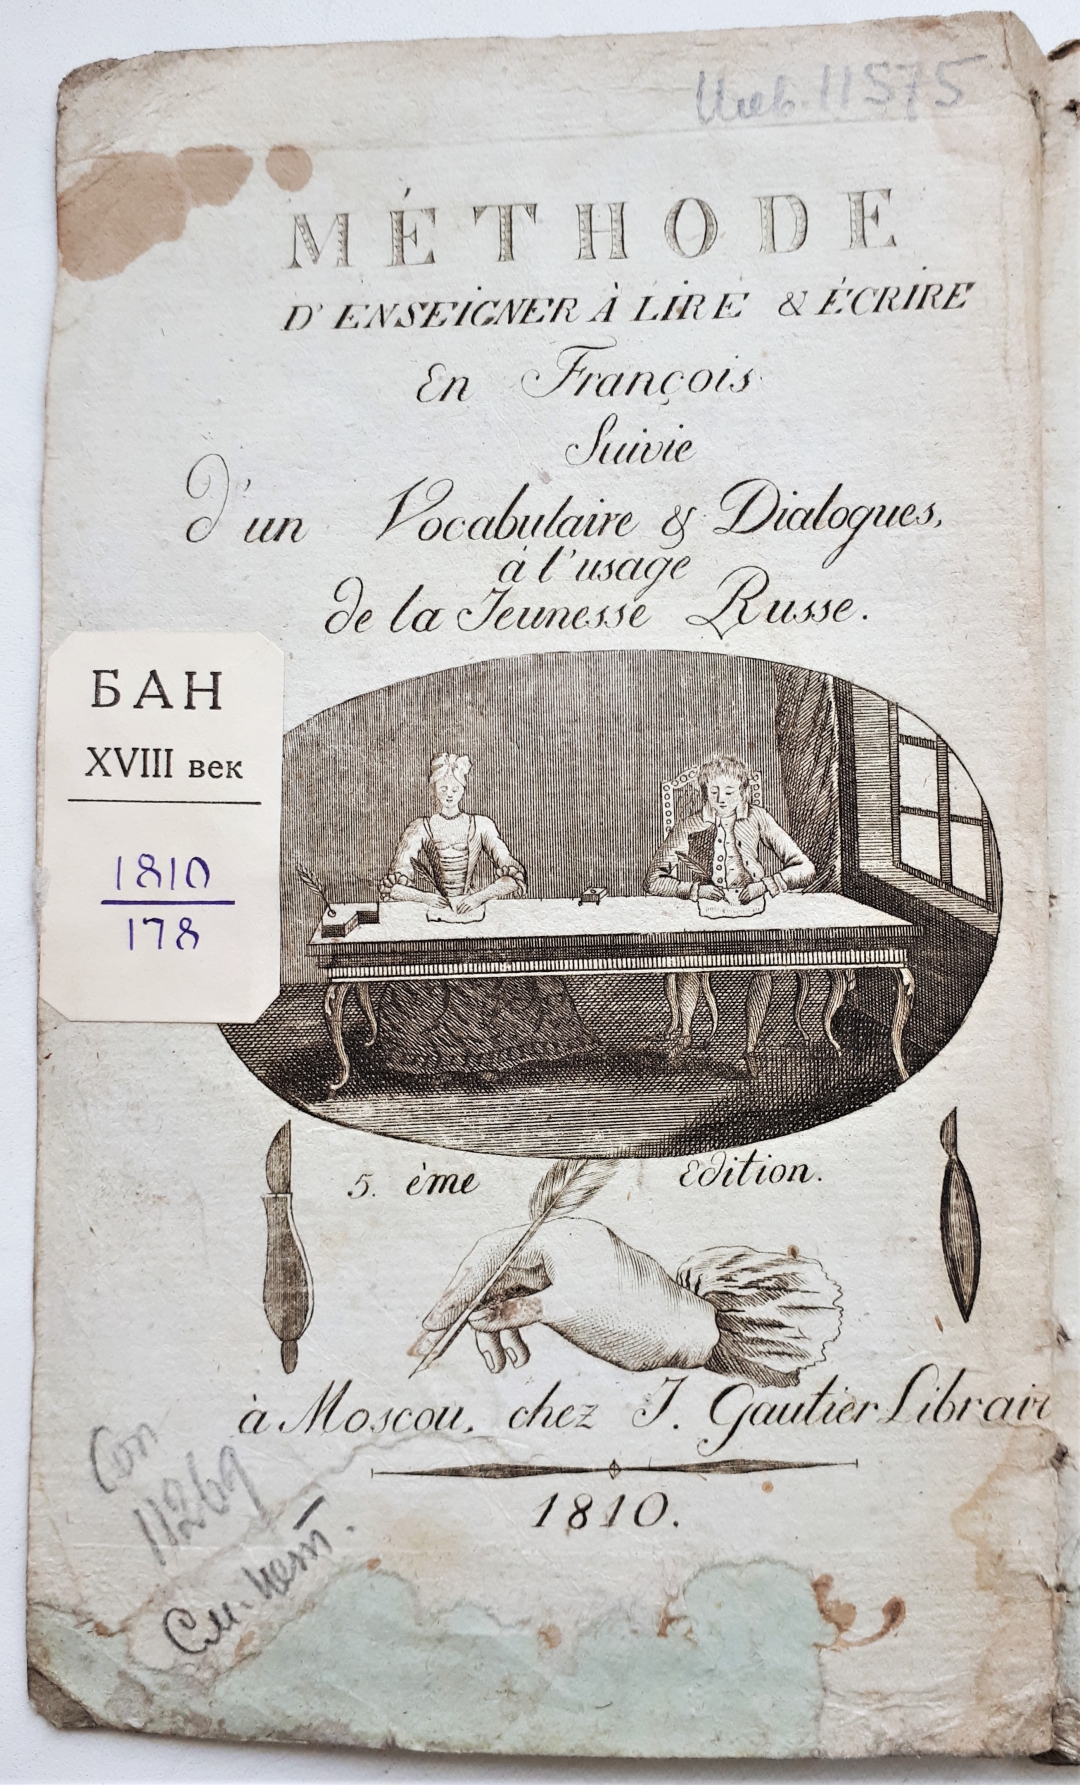 Инв. 11575
MÉTHODE
D'ENSEIGNER À LIRE & ÉCRIRE
En François
Suivie
d'un Vocabulaire & Dialogues,
à l'usage
de la Jeunesse Russe.
БАН
XVIII век
1810
178
5. ème Edition.
à Moscou, chez J. Gautier Librair
1810.
Соп
11269
См. нет.